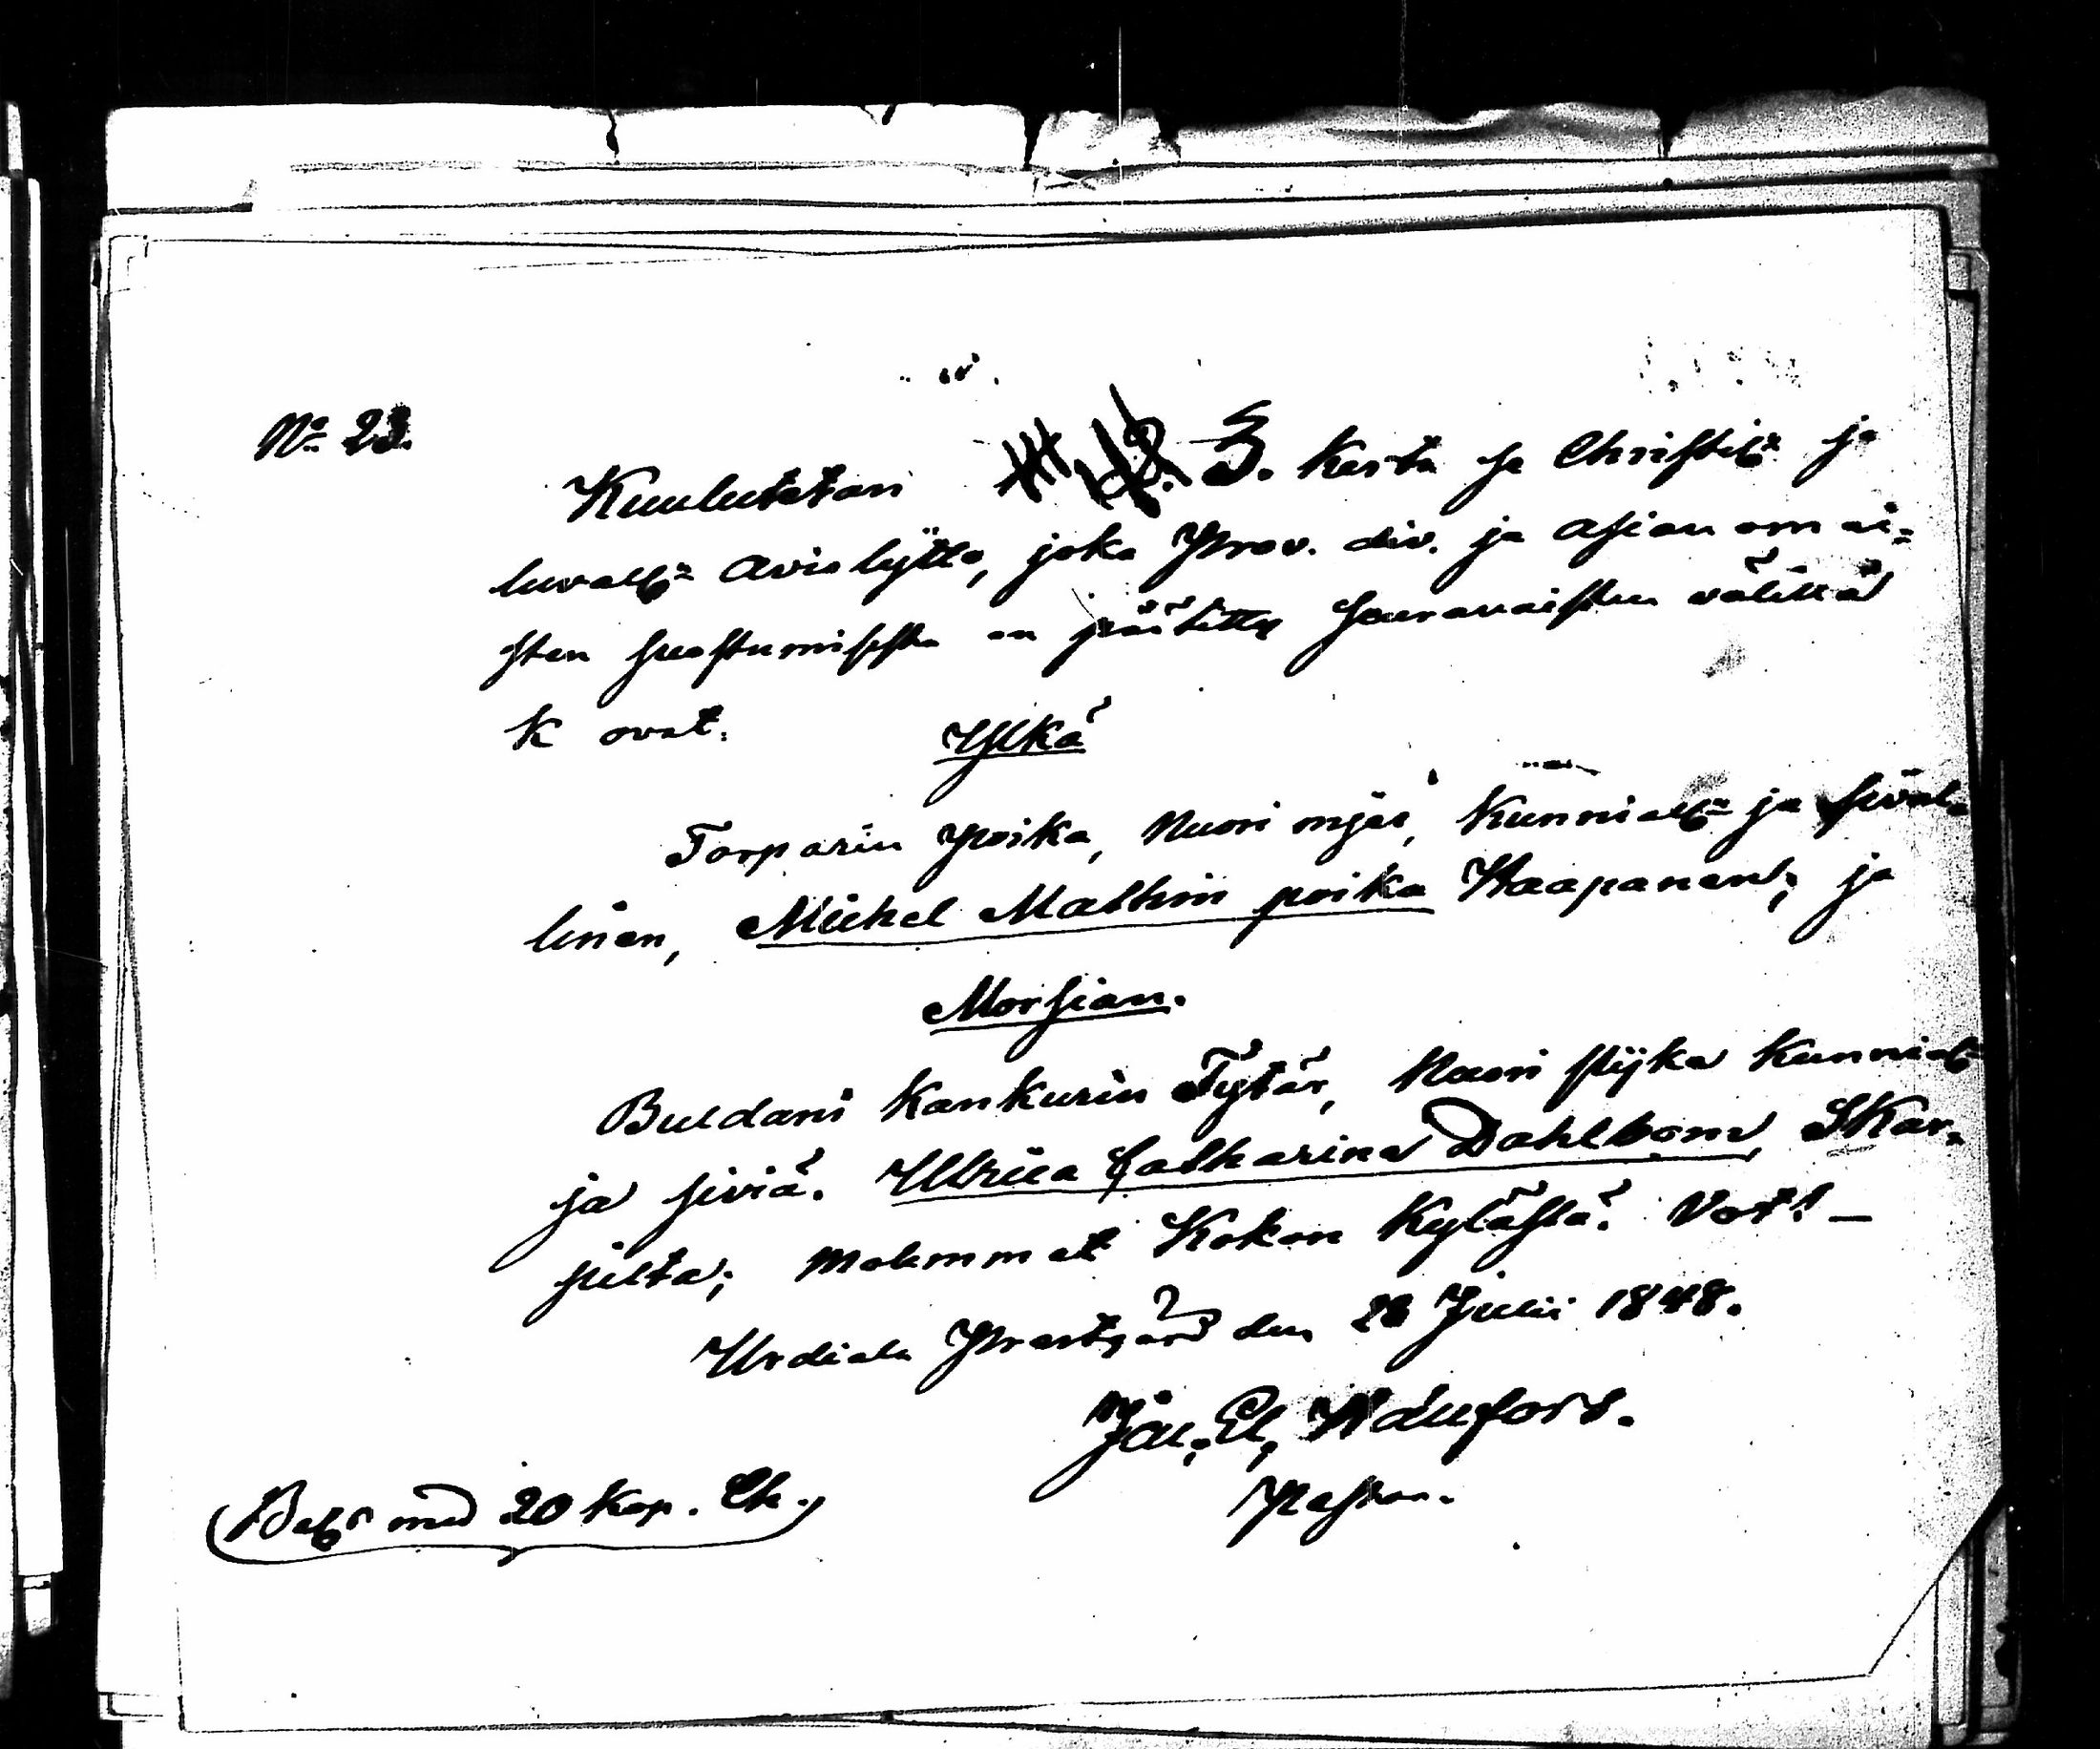 No 23.
Kuulutetan 3. Kerta se Christil: ja
luvall: Avioliytto, joka Prov. div. ja Asian omai=
sten suostumisesta on päätetty seuravaisten välillä
K ovat.
Ylkä
Torparin Poika, Nuori mjes, Kunniall: ja siviäl=
linen, Michel Mathin poika Haapanen; ja
Morsian.
Buldani Kankurin Tytär, Nuori pijka Kunnial:
ja siviä. Ulrica Catharina Dahlbom, Skar=
pilta; molemmat Kokon Kylästä. Vot! —
Urdiala Prestgård den 28 Julii 1848.
Jac. El. Widnfors.
Pastor.
(Bet: med 20 Kop. )